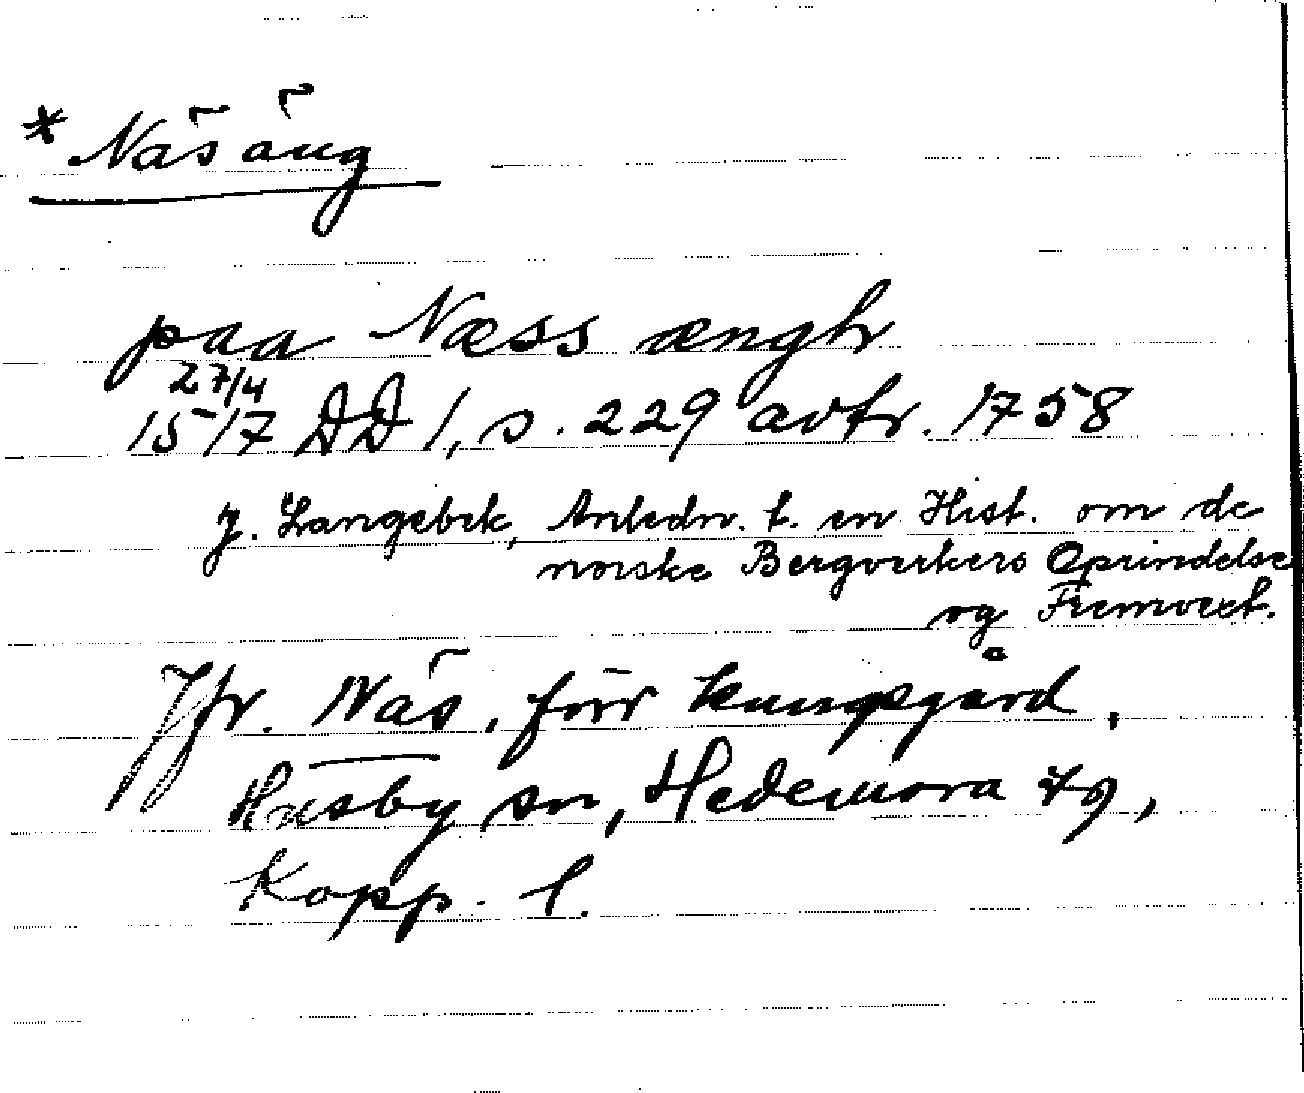 * Näsäng
paa Næss ængh
27/4
1517 DD 1, s. 229 avfr. 1758
J. Langebek, Anledn. t. en Hist. om de
norske Bergverkers Oprindelse
og Fremvext.
Jfr. Näs, förr kungsgård,
Husby sn, Hedemora tg,
Kopp. l.